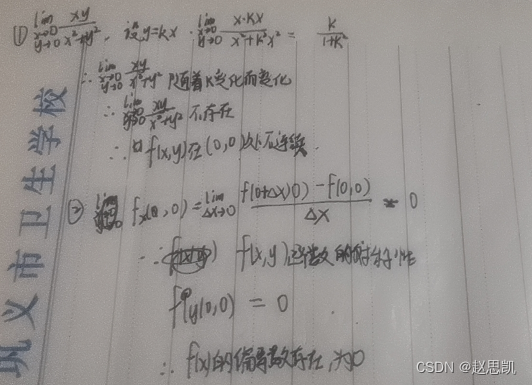 ① lim x→0 y→0 xy/x²+y², 设y=kx. lim x→0 y→0 x·kx/x²+k²x² = k/1+k²
∴ lim x→0 y→0 xy/x²+y² 随着k变化而变化
∴ lim x→0 y→0 xy/x²+y² 不存在
∴ f(x,y)在(0,0)处不连续.
② fx(0,0)=lim Δx→0 f(0+Δx,0)-f(0,0)/Δx = 0
∵ f(x,y) 函数的对称性
f'y(0,0) = 0
∴ f(x)的偏导数存在,为0
巩义市卫生学校
CSDN @赵思凯